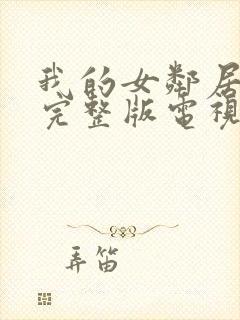 我的女鄰居
完整版電視
弄笛